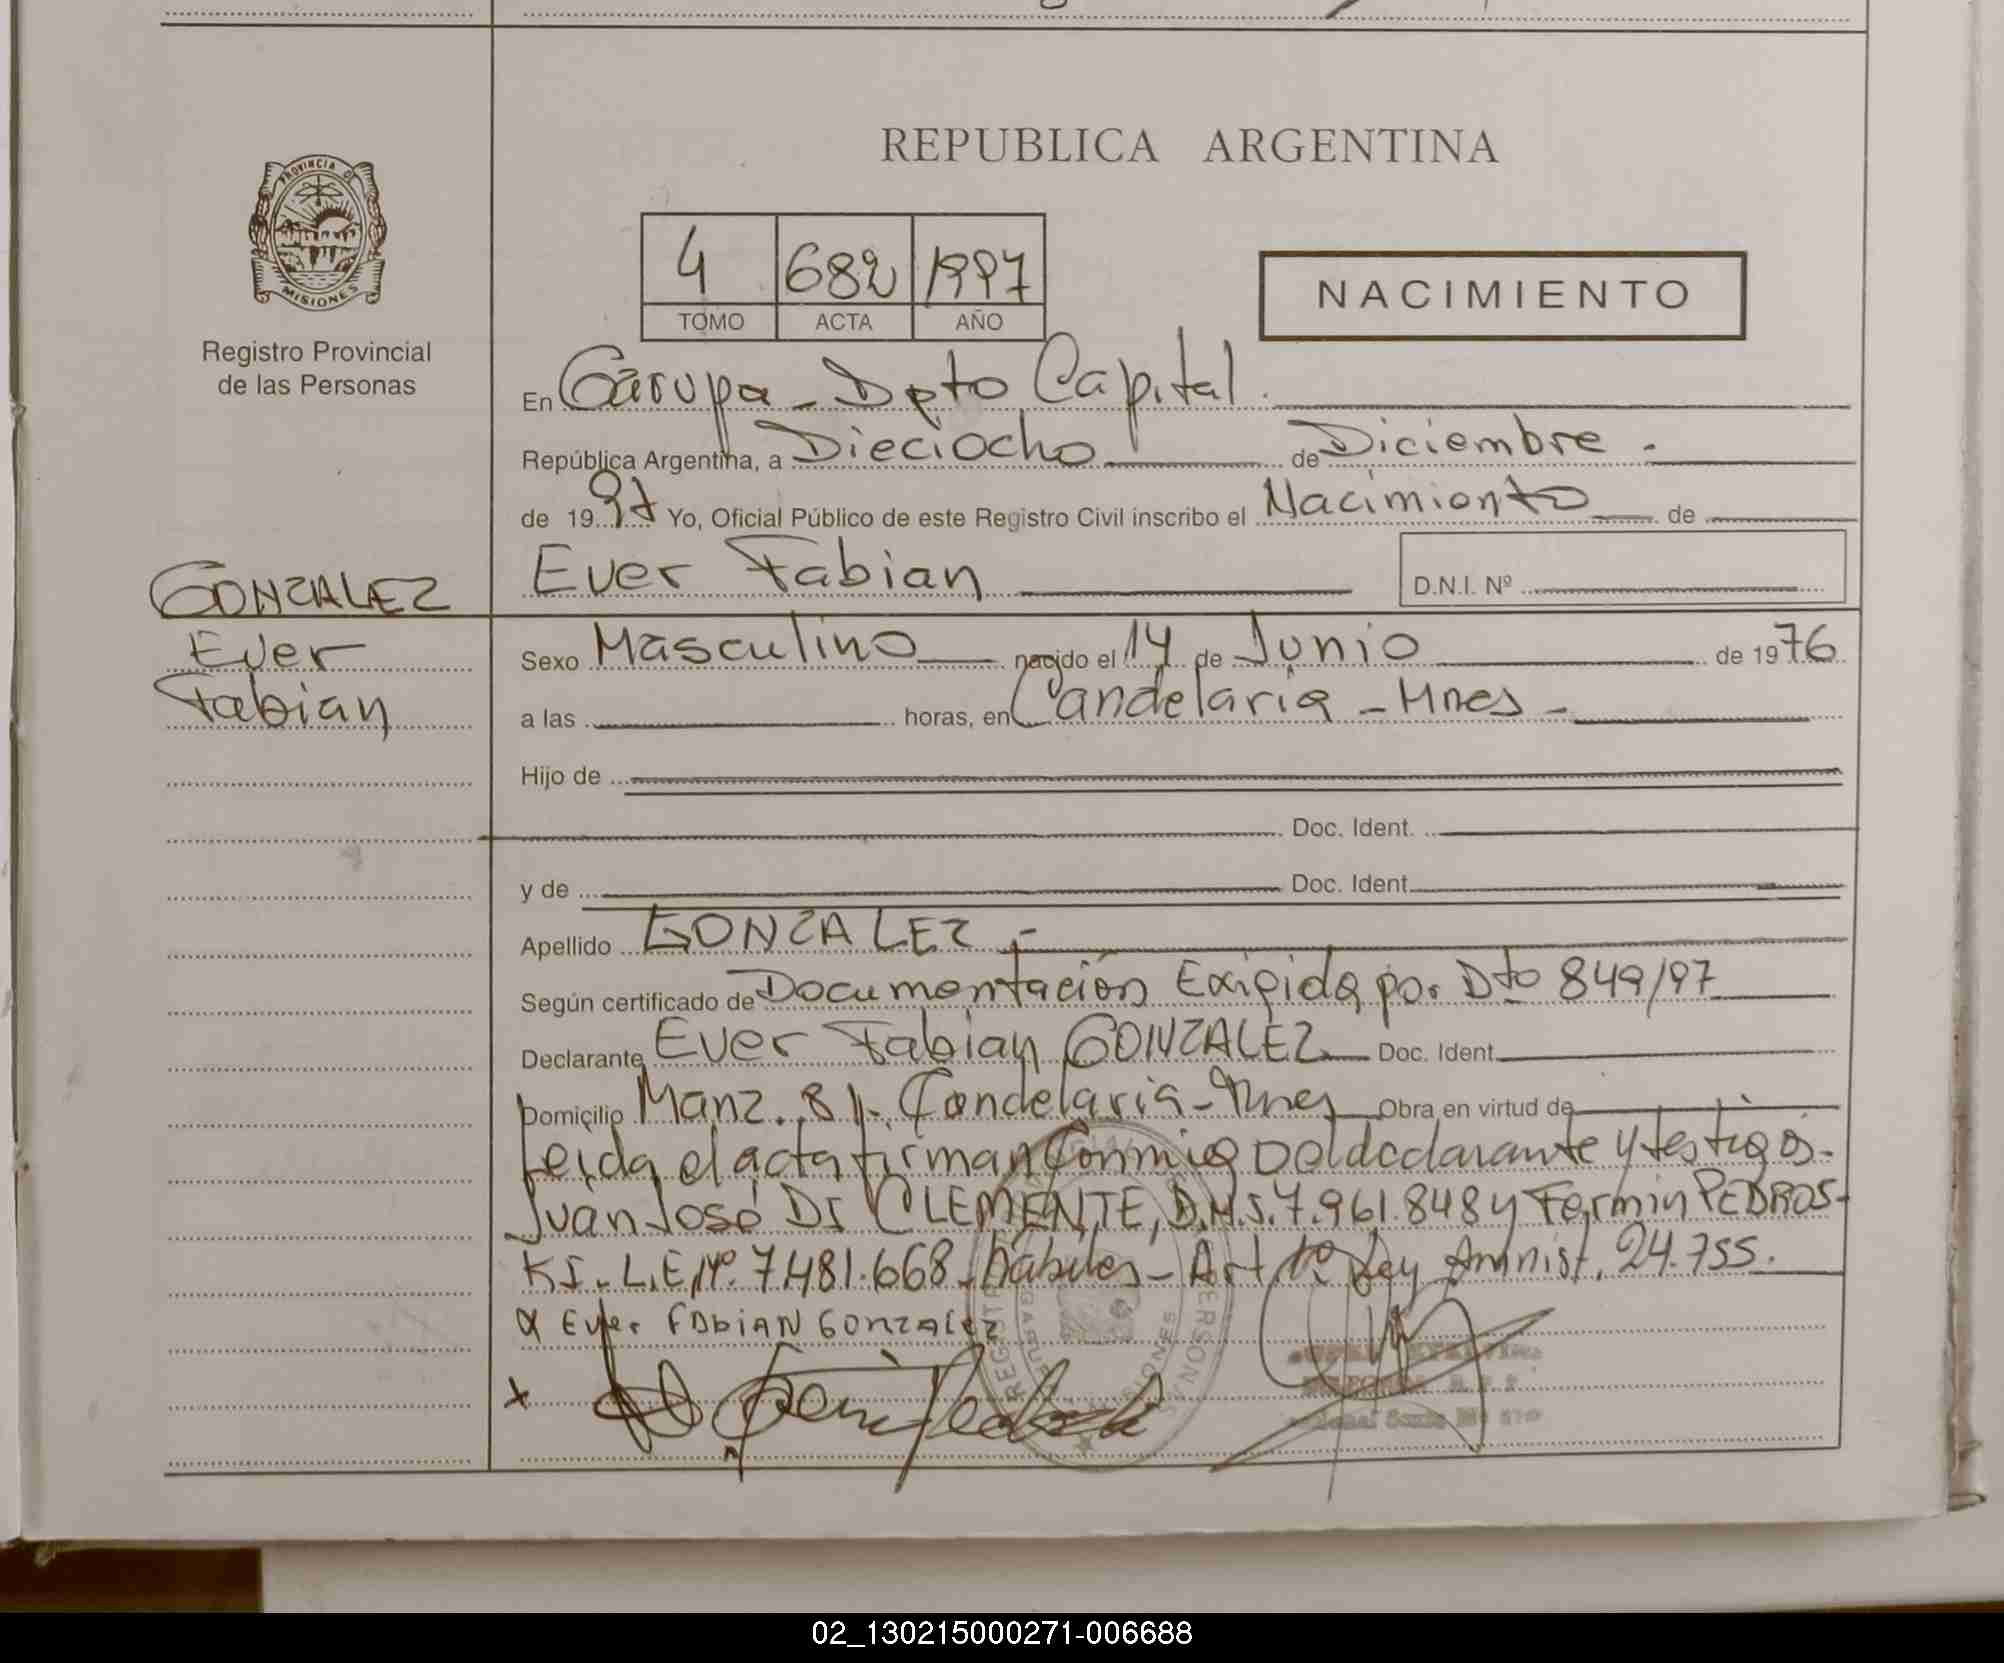 REPUBLICA ARGENTINA
PROVINCIA D
MISIONES
4 682 1997
TOMO ACTA AÑO
NACIMIENTO
Registro Provincial
de las Personas
En Garupa - Dpto Capital.
República Argentina, a Dieciocho de Diciembre.
de 1997 Yo, Oficial Público de este Registro Civil inscribo el Nacimiento de
GONZALEZ
Ever
Fabian
Ever Fabian D.N.I. Nº
Sexo Masculino nacido el 14 de Junio de 1976
a las horas, en Candelaria - Mnes -
Hijo de
Doc. Ident.
y de Doc. Ident.
Apellido GONZALEZ.-
Según certificado de Documentación Exigida por Dto 849/97
Declarante Ever Fabian GONZALEZ Doc. Ident.
Domicilio Manz. 81. Candelaria - Mnes Obra en virtud de
Leida el acta firman Conmigo el declarante y testigos.-
Juan José Di CLEMENTE, D.N.I. 7.961.848 y Fermin PEDROS-
KI. L.E.Nº. 7.481.668. habiles - Art. 1º Ley Amnist. 24.755.
Ever FABIAN GONZALEZ
REGISTR PERSONAS
MISIONES
02_130215000271-006688